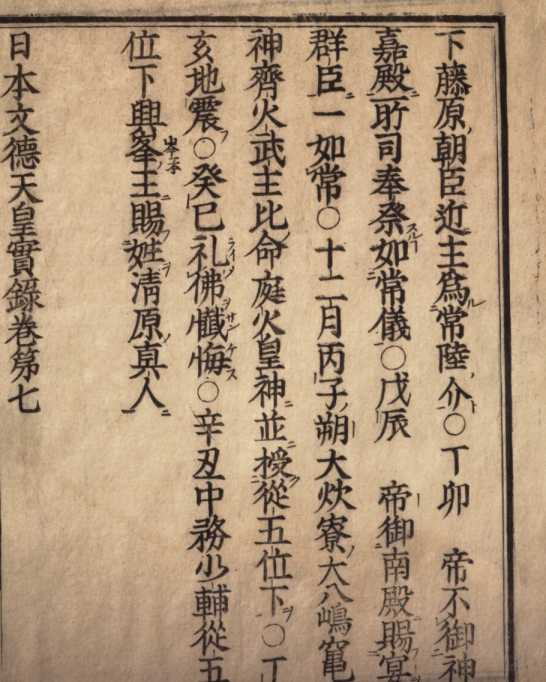 下藤原朝臣近主爲常陸介○丁卯　帝不御神
嘉殿所司奉祭如常儀○戊辰　帝御南殿賜宴
群臣一如常○十二月丙子朔大炊寮大八嶋竃
神齊火武主比命庭火皇神並授從五位下○丁
亥地震○癸巳礼佛懺悔○辛丑中務少輔從五
位下興峯王賜姓淸原眞人
日本文德天皇實錄卷第七